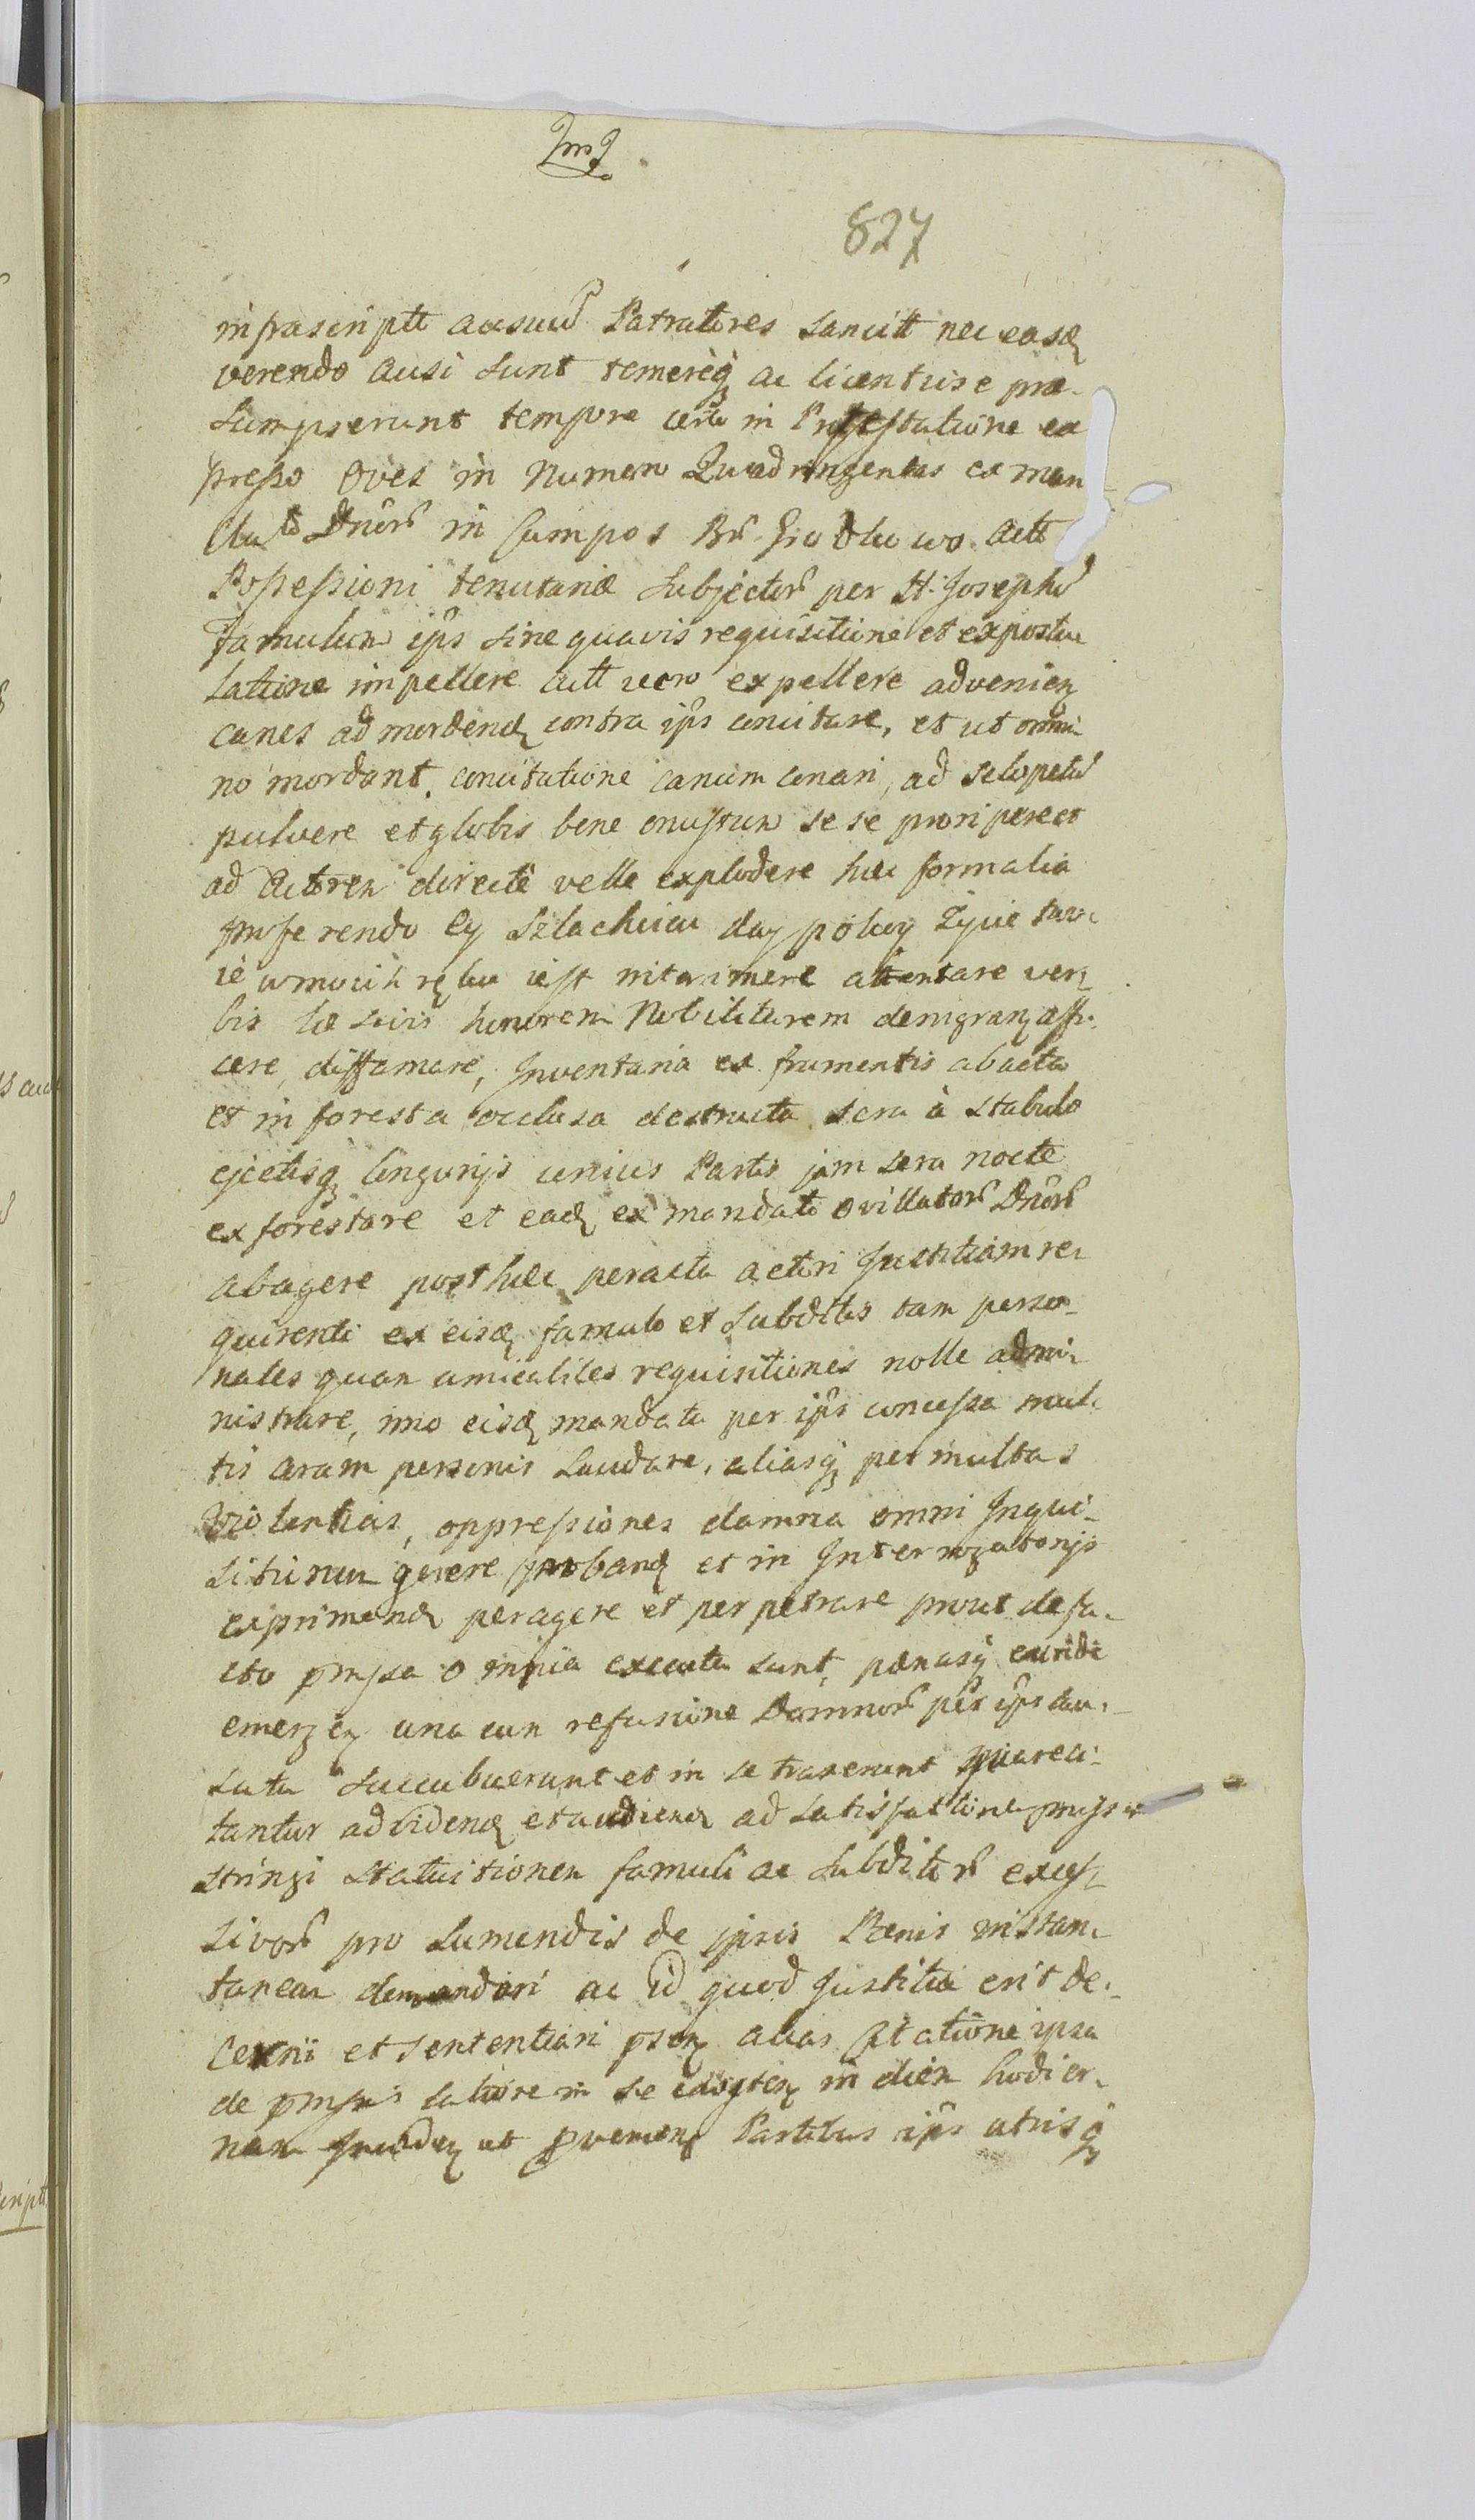 827
infrascriptt ausuũ Patratores sancitt nec easq
verendo ausi sunt temereq ac licentiose præ-
sumpserunt tempore certo in Protestatione ex
presso Oves in Numero Quadringentas ex man
dato Dnõr in Campos Br. actt
Possessioni tenutariæ subjector per H. Josephũ
famulum ips sine quavis requisitione et expostu
latione impellere actt vero expellere advenien
canes ad mordend contra ips concitare, et ut omni
no mordant, concitatione canum conari, ad sclopetũ
pulvere et globis bene onustum se se proripere et
ad Actorem directe velle explodere hæc formalia
proferendo Ey Szlachcicu day pokoy Zycie two-
ie w moich ręku iest intonimere attentare ver
bis læsivis honorem Nobilitarem denigran affi-
cere, diffamare, Inventaria ex frumentis abacta
et in foresta occlusa destructa sera à stabulo
ejectisq longurijs unius Partis jam sera nocte
exforestare et ead ex mandato ovillator Dnõr
abagere post hæc peracta actori Justitiam re-
quirenti ex eisd famulo et subditis tam perso-
nales quam amicabiles requisitiones nolle admi-
nistrare, imo eisd mandata per ips concessa mul-
tis coram personis laudare, aliasq per multas
violentias, oppressiones damna omni Inqui-
sitionum genere proband et in Interrogatorijs
exprimend peragere et perpetrare prout de fa-
cto pmssa omnia executa sunt, pœnasq exinde
emergen una cum refusione Damnor per ips cau-
sata succubuerunt et in se traxerunt quare ci-
tantur ad videnḍ et audiend ad satisfactionem pmssor
stringi statuitionem famuli ac subditor exces-
sivor pro sumendis de ipsis Pœnis instan-
taneam demandari ac id quod Justitiæ erit de-
cerni et sententiari psen alias Citatione ipsa
de pmssis latiore in se in diem hodier-
nam Inciden et pvenien Partibus ips utrisq